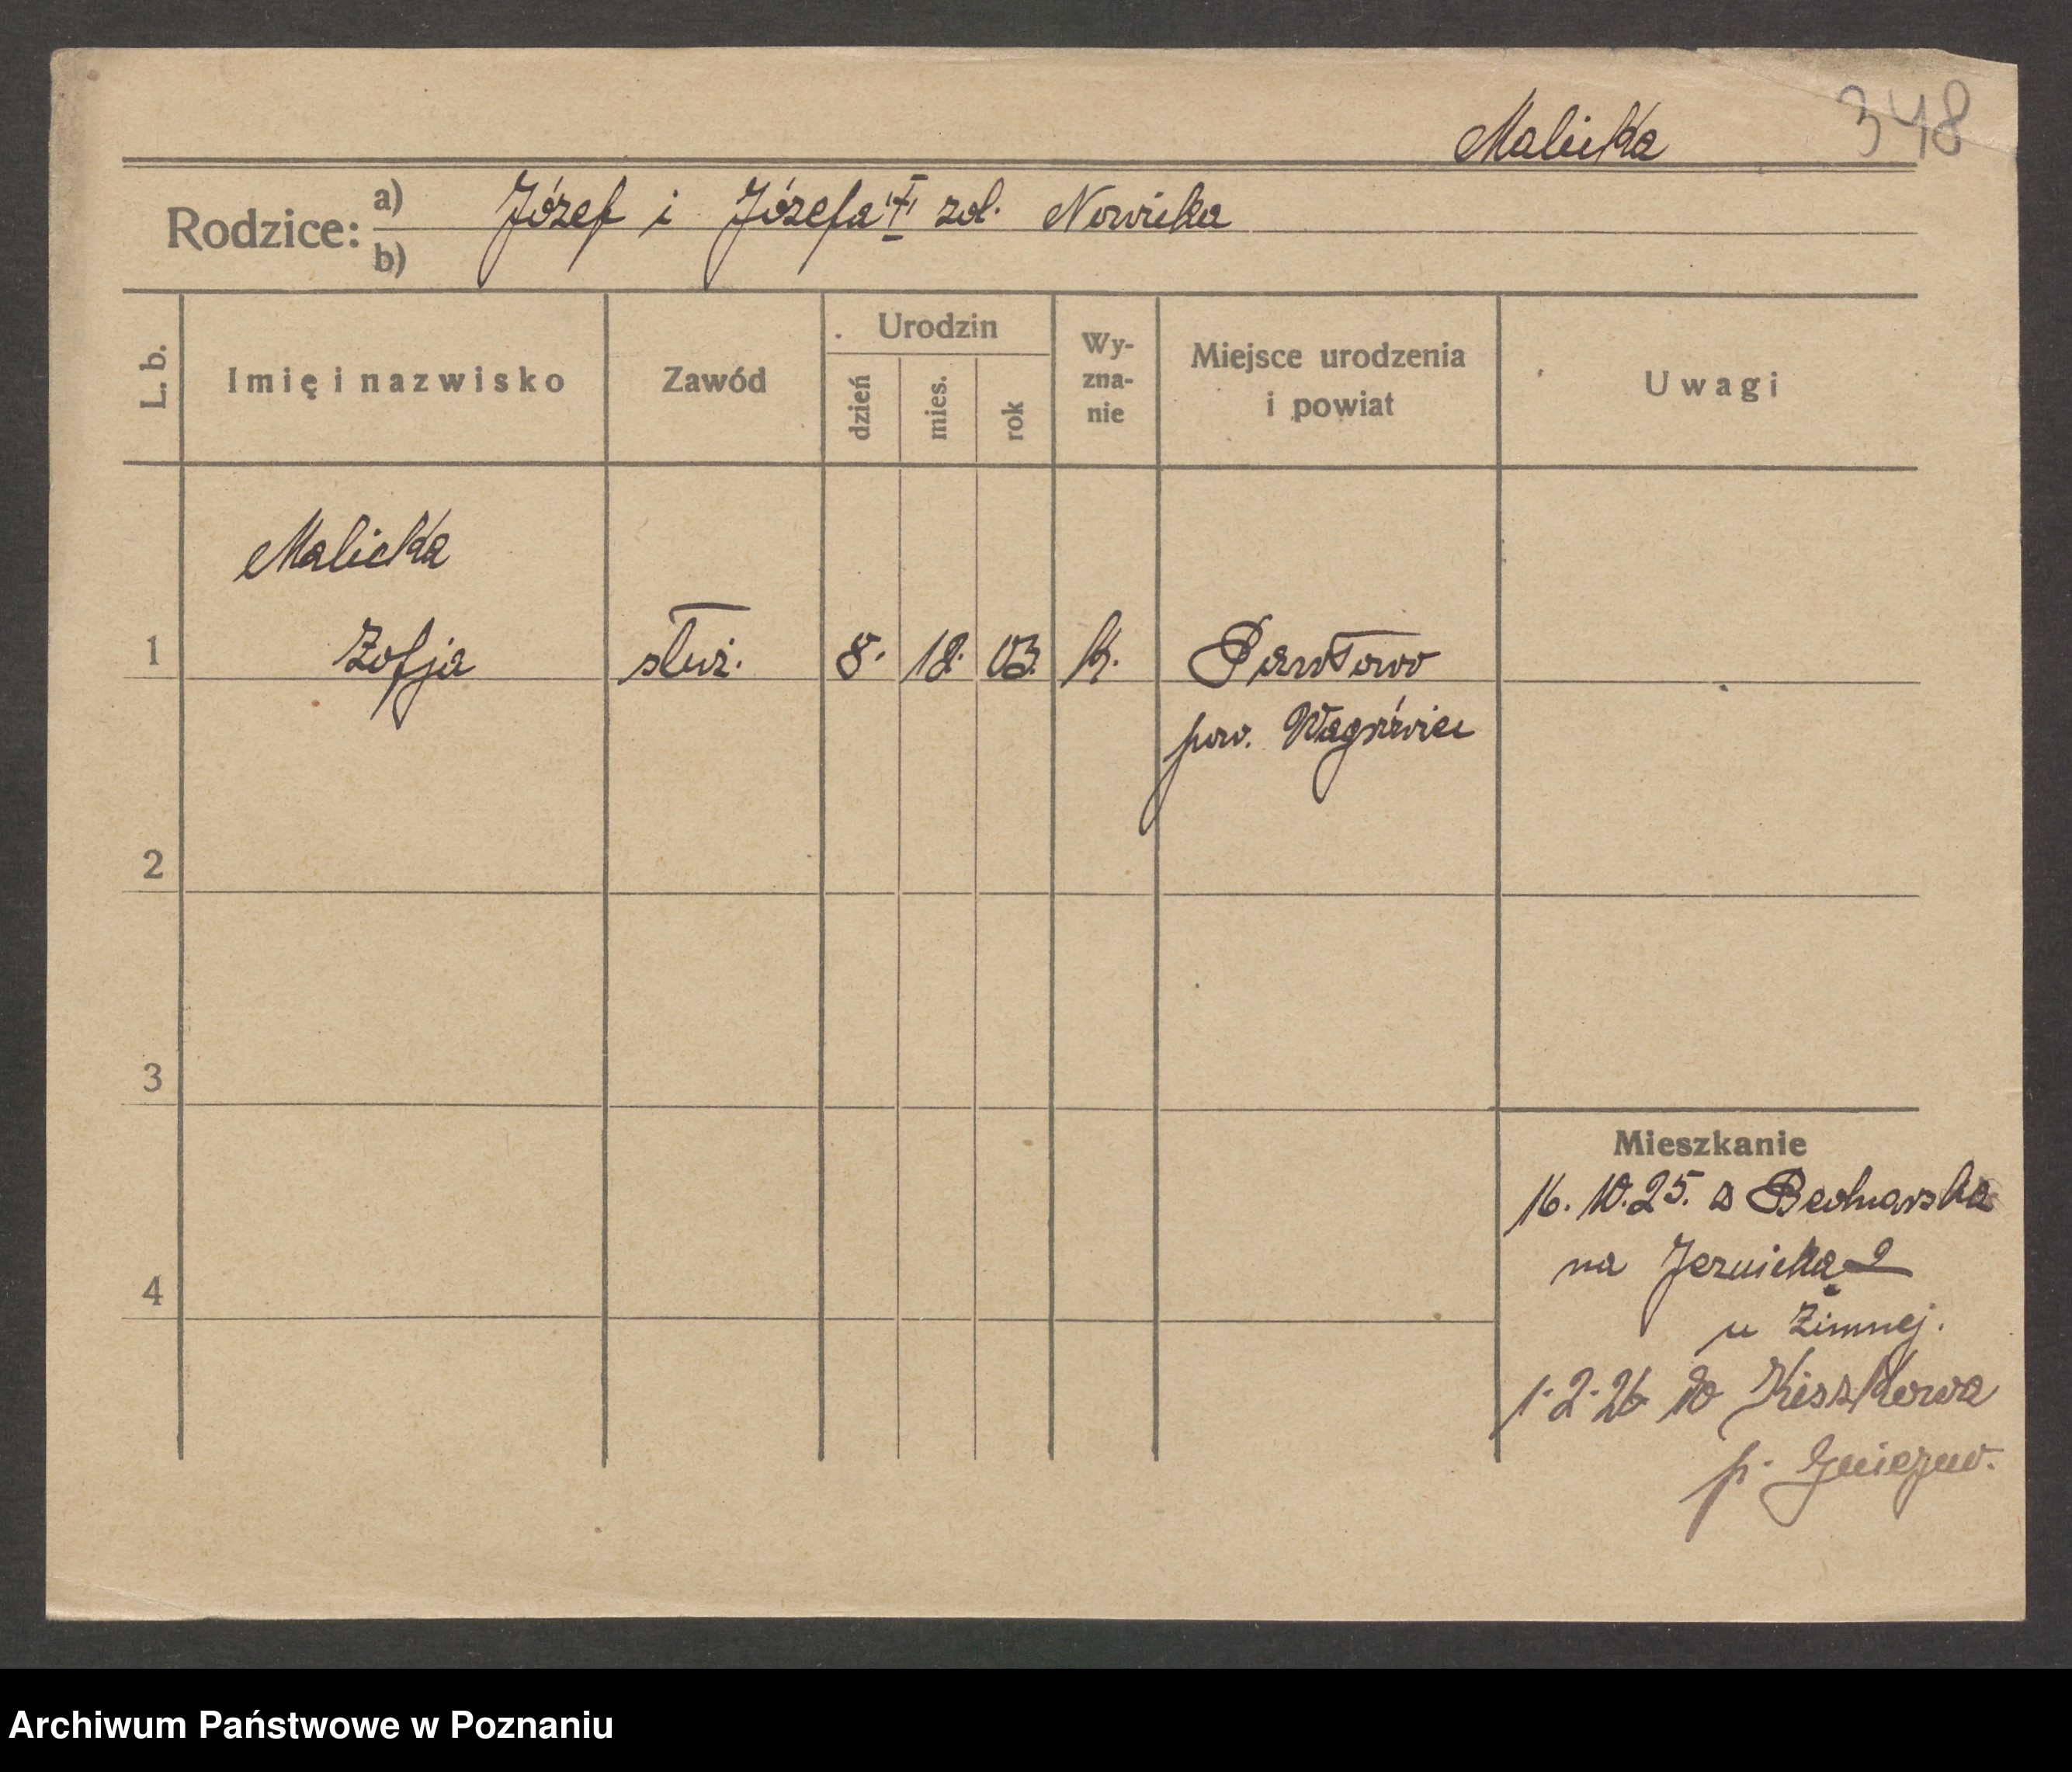 Malicka 348
Rodzice: a) Józef i Józefa "†" zd. Nowicka
b)
L. b. Imię i nazwisko Zawód Urodzin dzień mies. rok Wy-zna-nie Miejsce urodzenia i powiat Uwagi
Malicka
1 Zofja służ. 8. 12. 03. k. Pawłowo
pow. Wągrówiec
2
3
Mieszkanie
16. 10. 25. z Bednarska
na Jeznicką 2
4
u Zimnej.
1. 2. 26 do Kiszkowa
p. Gniezno.
Archiwum Państwowe w Poznaniu